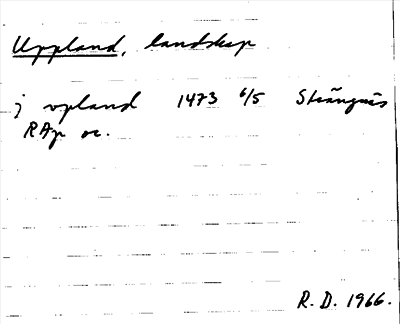 Uppland, landskap
j vpland 1473 6/5 Strängnäs
RAp or.
R. D. 1966.